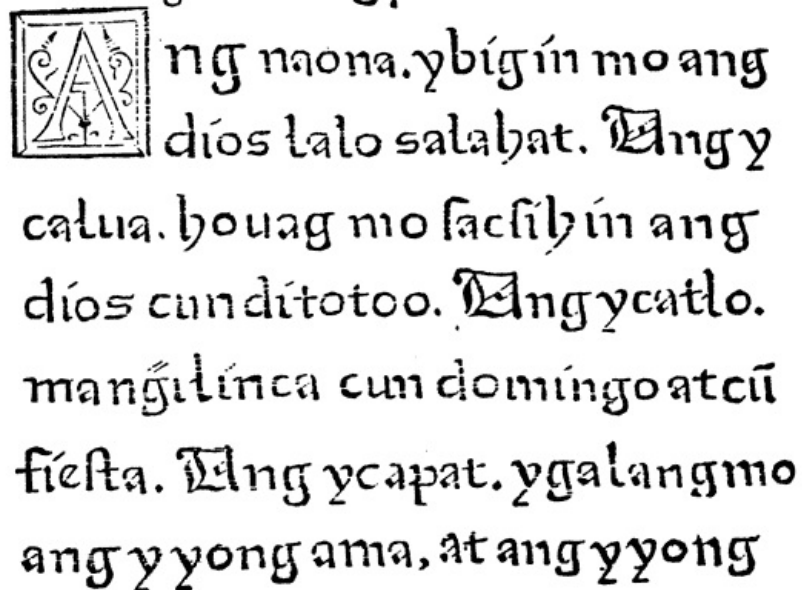 Ang naona. ybigin mo ang
dios lalo salahat. Ang y
calua. houag mo ſacſihin ang
dios cun ditotoo. Ang ycatlo.
mang̃ilinca cun domingo at cũ
fieſta. Ang ycapat. ygalang mo
ang yyong ama, at ang yyong